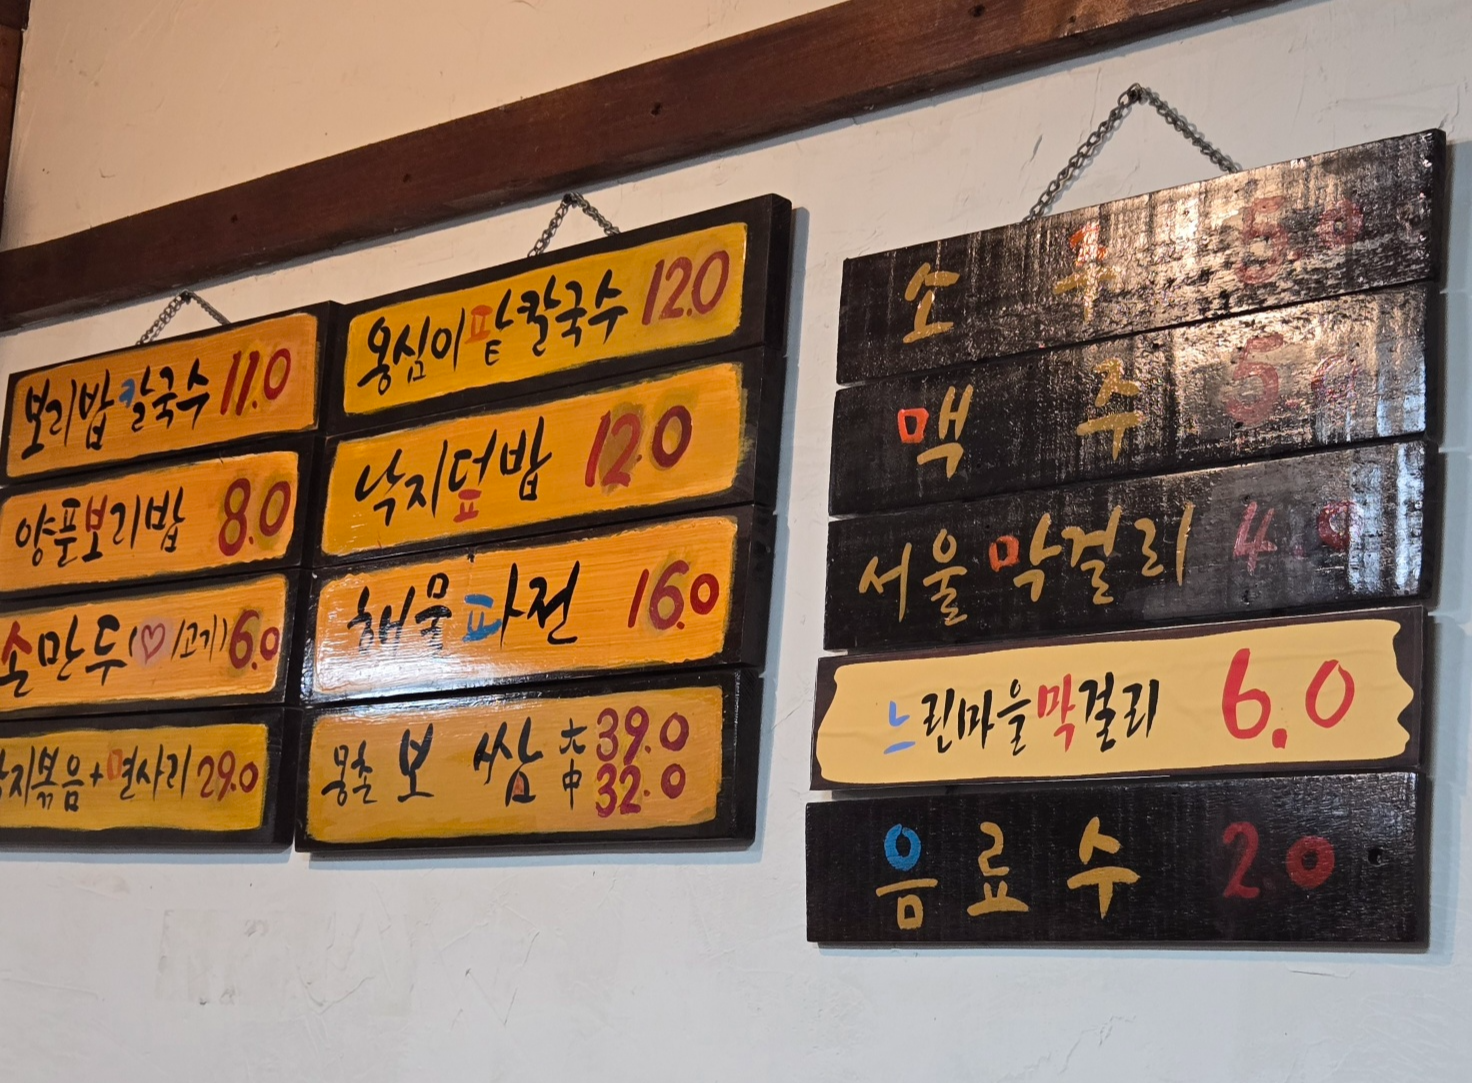 보리밥칼국수 11.0
양푼보리밥 8.0
손만두(♡/고기) 6.0
낙지볶음+면사리 29.0
옹심이팥칼국수 12.0
낙지덮밥 12.0
해물파전 16.0
몽촌 보쌈 大 39.0
中 32.0
소주 5.0
맥주 5.0
서울막걸리 4.0
느린마을막걸리 6.0
음료수 2.0